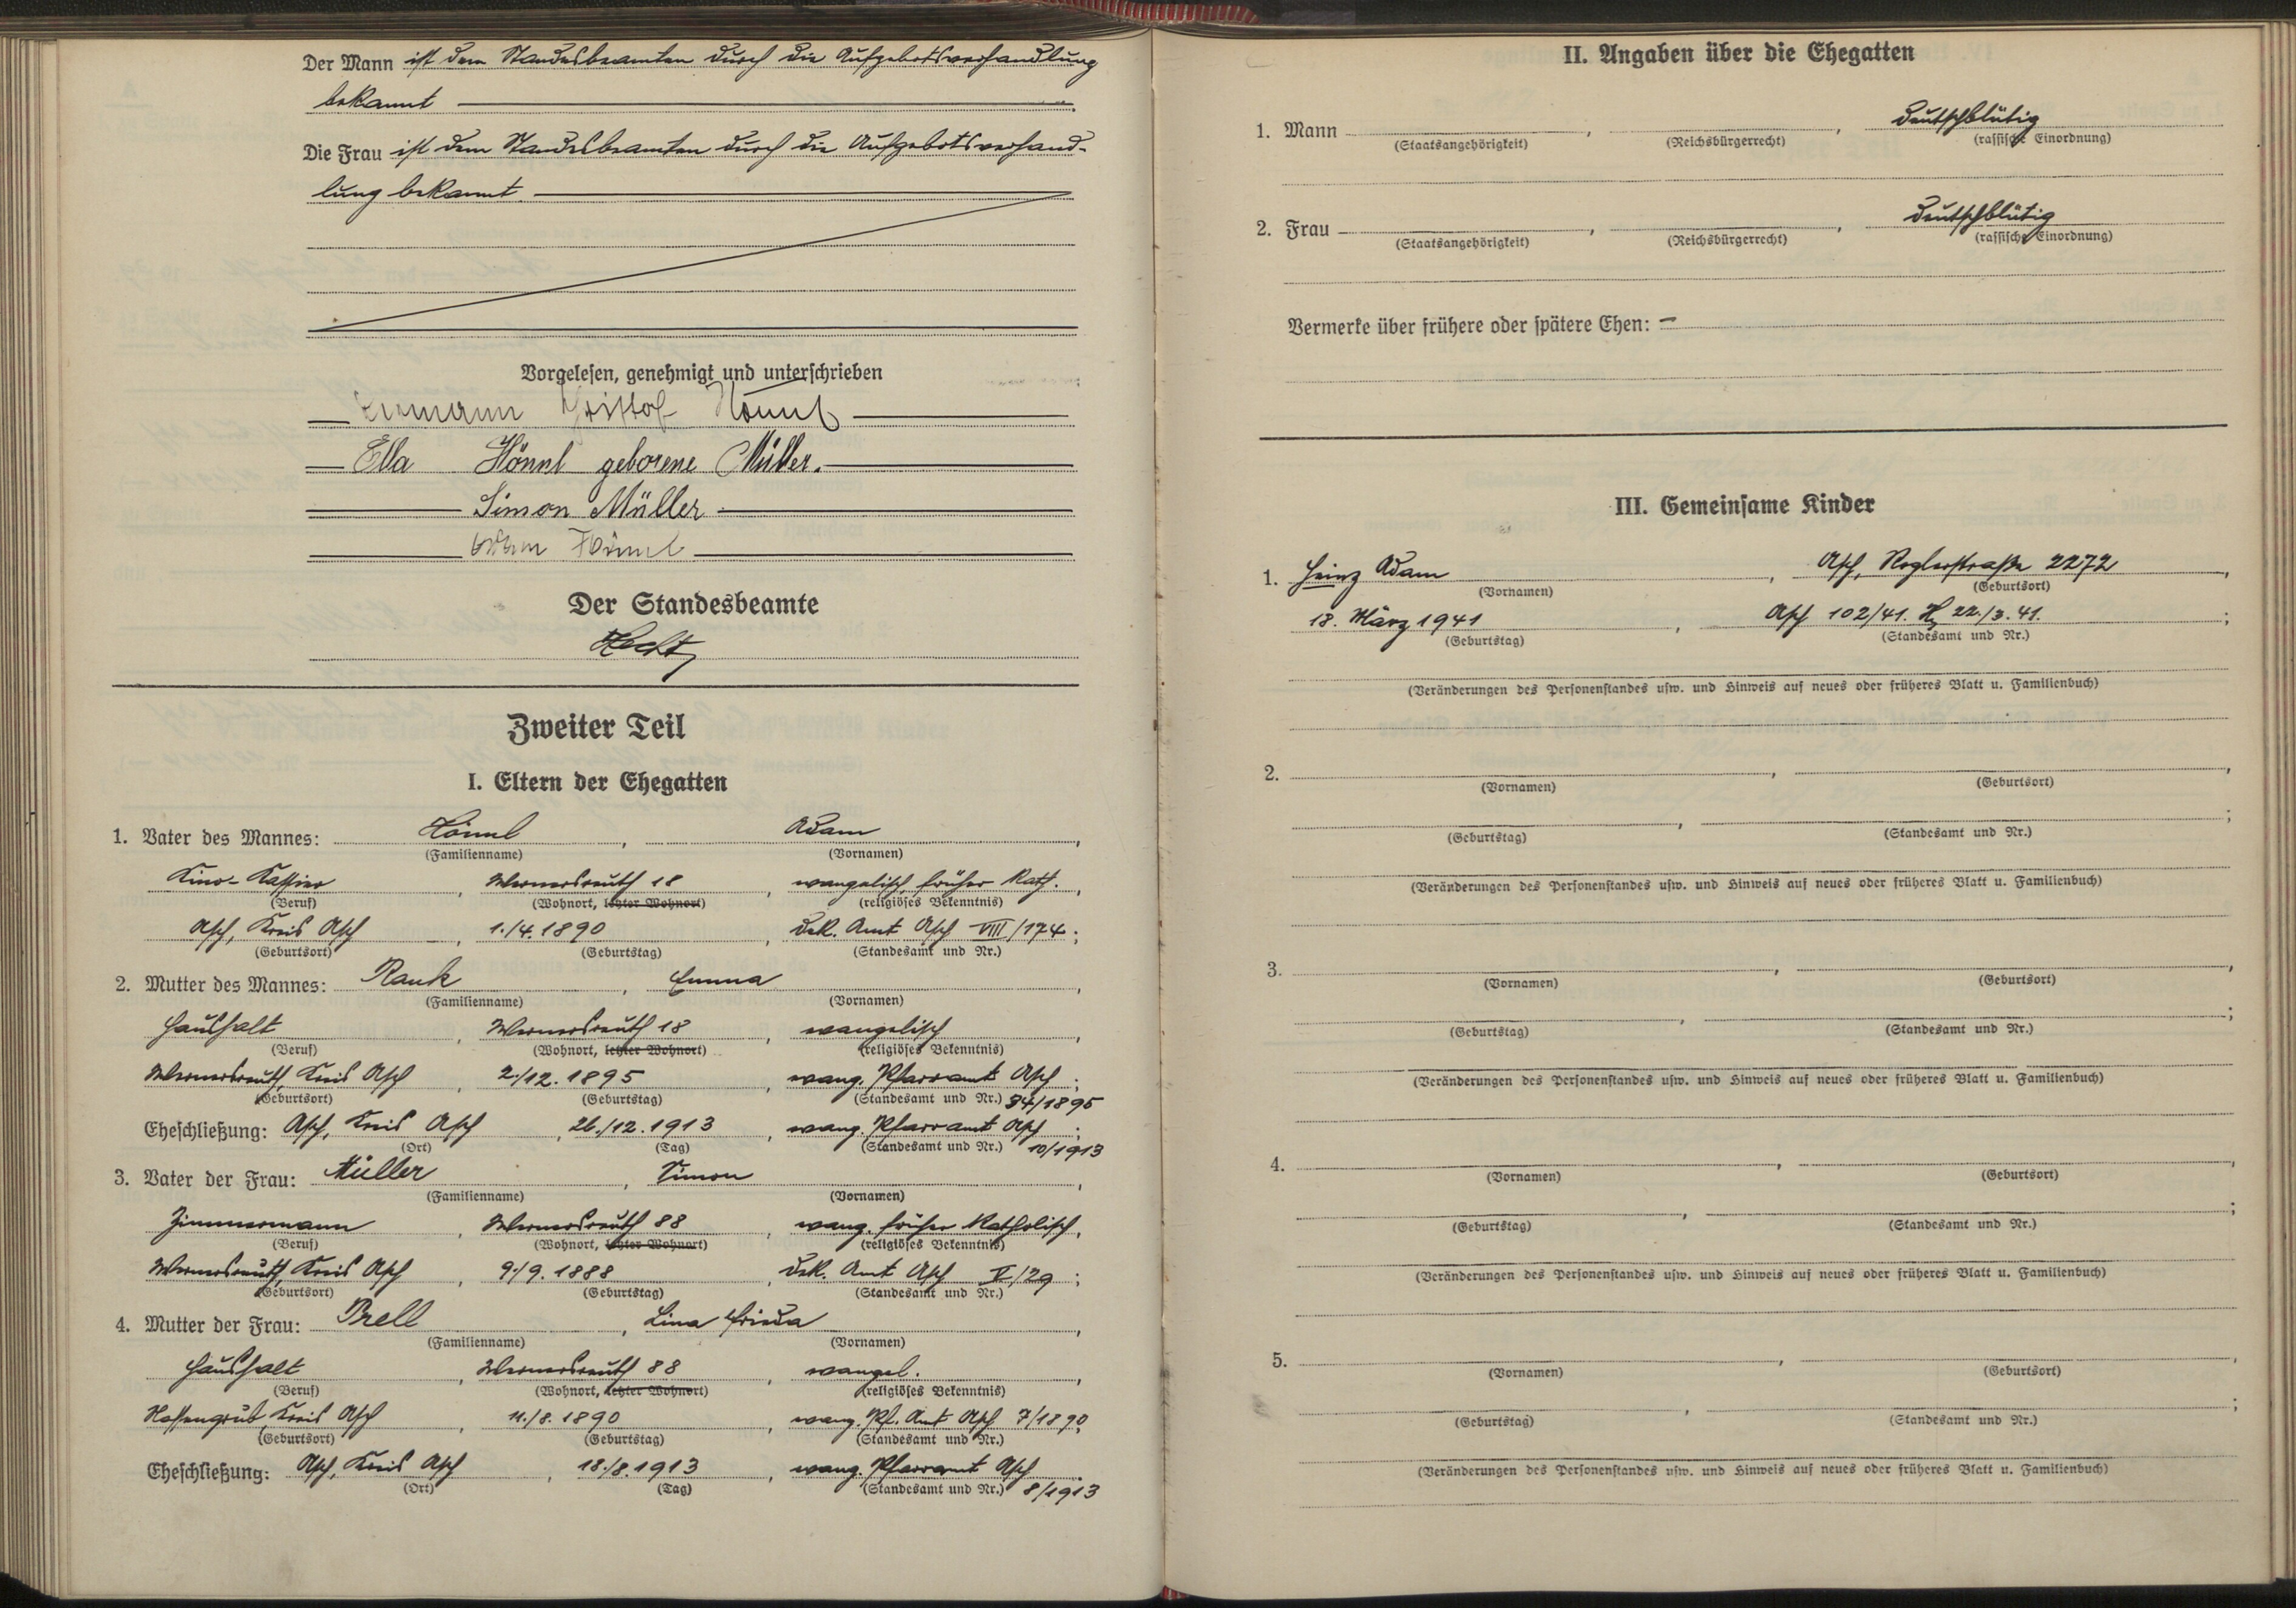 Der Mann ist dem Standesbeamten durch die Aufgebotsverhandlung
bekannt
Die Frau ist dem Standesbeamten durch die Aufgebotsverhand-
lung bekannt
Vorgelesen, genehmigt und unterschrieben
Hermann Hönnl
Ella Hönnl geborene Müller.
Simon Müller
Adam Hönnl
Der Standesbeamte
Hecht
Zweiter Teil
I. Eltern der Ehegatten
1. Vater des Mannes: Hönnl, Adam,
(Familienname) (Vornamen)
Kino-Kassier, Wernersreuth 18, evangelisch, früher kath.,
(Beruf) (Wohnort, letzter Wohnort) (religiöses Bekenntnis)
Asch, Kreis Asch, 1./4. 1890, Dek. Amt Asch VIII/174;
(Geburtsort) (Geburtstag) (Standesamt und Nr.)
2. Mutter des Mannes: Rank, Emma,
(Familienname) (Vornamen)
Haushalt, Wernersreuth 18, evangelisch,
(Beruf) (Wohnort, letzter Wohnort) (religiöses Bekenntnis)
Wernersreuth, Kreis Asch, 2./12. 1895, evang. Pfarramt Asch;
(Geburtsort) (Geburtstag) (Standesamt und Nr.) 34/1895
Eheschließung: Asch, Kreis Asch, 26./12. 1913, evang. Pfarramt Asch;
(Ort) (Tag) (Standesamt und Nr.) 10/1913
3. Vater der Frau: Müller, Simon,
(Familienname) (Vornamen)
Zimmermann, Wernersreuth 88, evang. früher katholisch,
(Beruf) (Wohnort, letzter Wohnort) (religiöses Bekenntnis)
Wernersreuth, Kreis Asch, 9./9. 1888, Dek. Amt Asch V/29;
(Geburtsort) (Geburtstag) (Standesamt und Nr.)
4. Mutter der Frau: Prell, Lina Frieda,
(Familienname) (Vornamen)
Haushalt, Wernersreuth 88, evangel.,
(Beruf) (Wohnort, letzter Wohnort) (religiöses Bekenntnis)
Nassengrub, Kreis Asch, 11./8. 1890, evang. Pf. Amt Asch 7/1890;
(Geburtsort) (Geburtstag) (Standesamt und Nr.)
Eheschließung: Asch, Kreis Asch, 18./8. 1913, evang. Pfarramt Asch
(Ort) (Tag) (Standesamt und Nr.) 8/1913
II. Angaben über die Ehegatten
1. Mann , , deutschblütig
(Staatsangehörigkeit) (Reichsbürgerrecht) (rassische Einordnung)
2. Frau , , deutschblütig
(Staatsangehörigkeit) (Reichsbürgerrecht) (rassische Einordnung)
Vermerke über frühere oder spätere Ehen: –
III. Gemeinsame Kinder
1. Heinz Adam, Asch, Roglerstraße 2272,
(Vornamen) (Geburtsort)
18. März 1941, Asch 102/41. 22./3. 41.;
(Geburtstag) (Standesamt und Nr.)
(Veränderungen des Personenstandes usw. und Hinweis auf neues oder früheres Blatt u. Familienbuch)
2. , ,
(Vornamen) (Geburtsort)
, ;
(Geburtstag) (Standesamt und Nr.)
(Veränderungen des Personenstandes usw. und Hinweis auf neues oder früheres Blatt u. Familienbuch)
3. , ,
(Vornamen) (Geburtsort)
, ;
(Geburtstag) (Standesamt und Nr.)
(Veränderungen des Personenstandes usw. und Hinweis auf neues oder früheres Blatt u. Familienbuch)
4. , ,
(Vornamen) (Geburtsort)
, ;
(Geburtstag) (Standesamt und Nr.)
(Veränderungen des Personenstandes usw. und Hinweis auf neues oder früheres Blatt u. Familienbuch)
5. , ,
(Vornamen) (Geburtsort)
, ;
(Geburtstag) (Standesamt und Nr.)
(Veränderungen des Personenstandes usw. und Hinweis auf neues oder früheres Blatt u. Familienbuch)